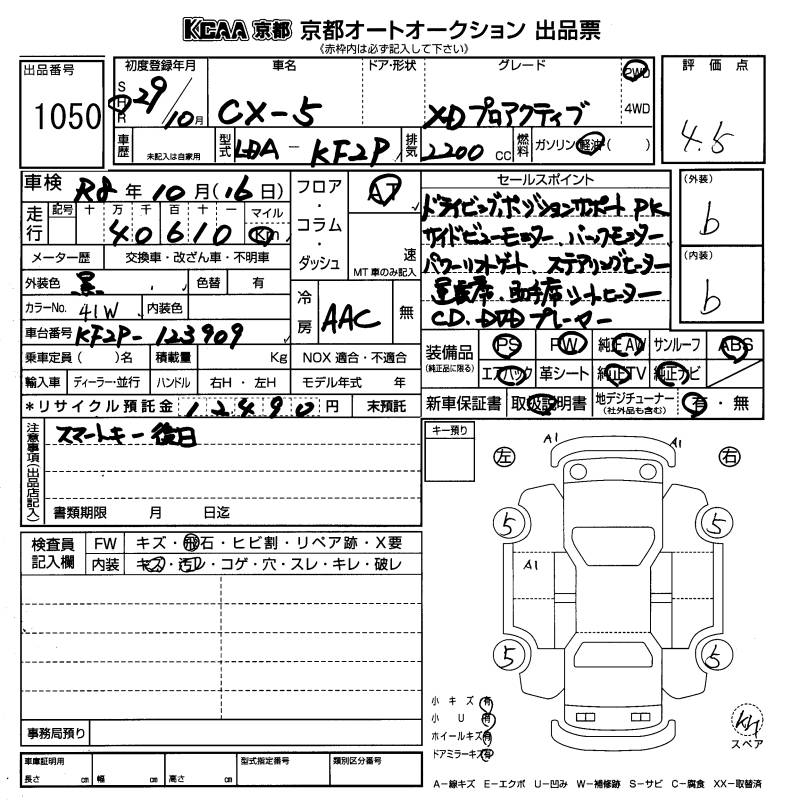 KCAA 京都 京都オートオークション 出品票
《赤枠内は必ず記入して下さい》
出品番号
1050
初度登録年月 車名 ドア・形状 グレード 評価点
S H R 29 10月 CX-5 XD プロアクティブ 2WD 4WD 4.5
車歴 未記入は自家用 型式 LDA - KF2P 排気 2200 cc 燃料 ガソリン・軽油( )
車検 R8 年 10 月(16日) フロア・コラム・ダッシュ AT 速 MT車のみ記入
走行 記号 十 万 千 百 十 一 マイル Km
40610
メーター歴 交換車・改ざん車・不明車
外装色 黒 色替 有
カラーNo. 41W 内装色
冷房 AAC 無
車台番号 KF2P-123909
乗車定員( )名 積載量 Kg NOX 適合・不適合
輸入車 ディーラー・並行 ハンドル 右H・左H モデル年式 年
*リサイクル預託金 12490 円 未預託
セールスポイント
ドライビングポジションサポート PK
サイドビューモニター バックモニター
パワーリフトゲート ステアリングヒーター
運転席・助手席シートヒーター
CD、DVDプレーヤー
(外装)
b
(内装)
b
装備品 (純正品に限る) PS PW 純正AW サンルーフ ABS
エアバック 革シート 純正TV 純正ナビ
新車保証書 取扱説明書 地デジチューナー (社外品も含む) 有・無
注意事項(出品店記入) スマートキー 後日
書類期限 月 日迄
検査員記入欄 FW キズ・飛石・ヒビ割・リペア跡・X要
内装 キズ・汚レ・コゲ・穴・スレ・キレ・破レ
事務局預り
車庫証明用 長さ cm 幅 cm 高さ cm 型式指定番号 類別区分番号
キー預り
左 A1 A1 右
5 5
A1
5 5
小キズ 有
小U 有
ホイールキズ 有
ドアミラーキズ 有
スペア
A-線キズ E-エクボ U-凹み W-補修跡 S-サビ C-腐食 XX-取替済